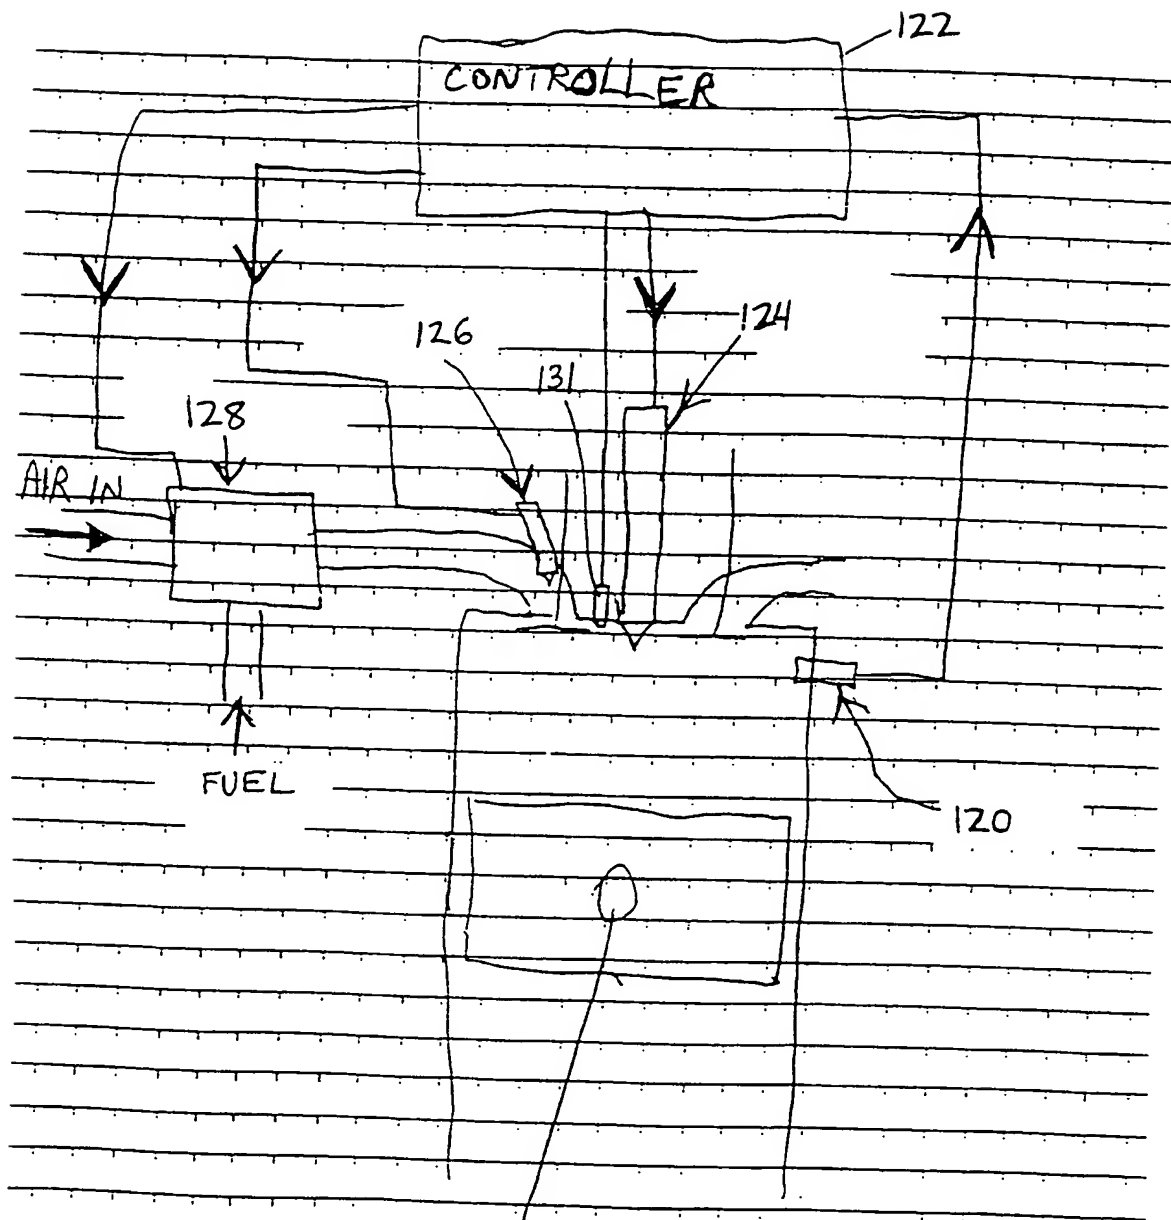 122
CONTROLLER
124
126
131
128
AIR IN
FUEL
120